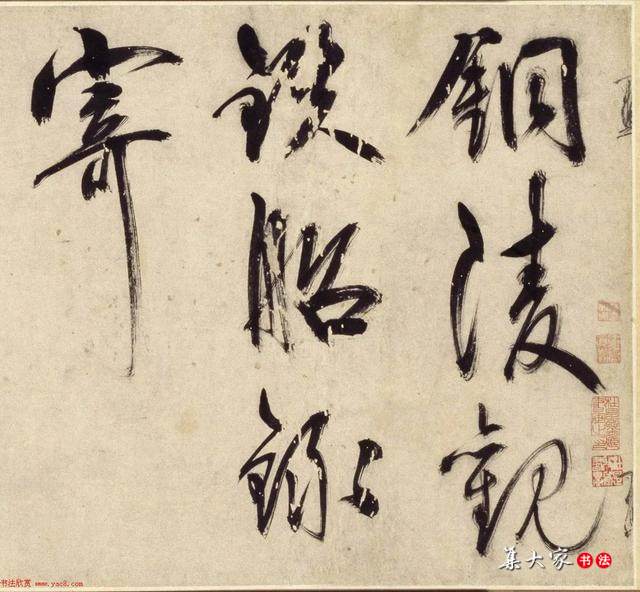 銅陵觀
鐵船錄
寄
集大家书法
书法欣赏 www.yac8.com